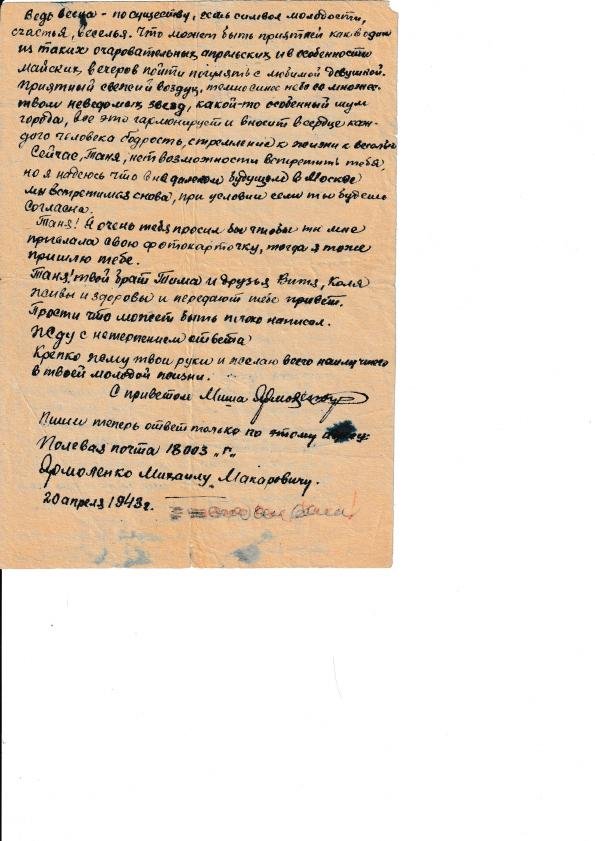 Ведь весна - по существу, есть символ молодости,
счастья, веселья. Что может быть приятней как в один
из таких очаровательных апрельских и в особенности
майских вечеров пойти погулять с любимой девушкой.
Приятный свежий воздух, темносинее небо со множес-
твом неведомых звезд, какой-то особенный шум
города, все это гармонирует и вносит в сердце каж-
дого человека бодрость, стремление к жизни к веселью
Сейчас, Таня, нет возможности встретить тебя,
но я надеюсь что в недалеком будущем в Москве
мы встретимся снова, при условии если ты будешь
согласна.
Таня! Я очень тебя просил бы чтобы ты мне
прислала свою фотокарточку, тогда я тоже
пришлю тебе.
Таня! твой брат Тима и друзья Витя, Коля
живы и здоровы и передают тебе привет.
Прости что может быть плохо написал.
Жду с нетерпением ответа
Крепко жму твои руки и желаю всего наилучшего
в твоей молодой жизни.
С приветом Миша Ярмоленко
Пиши теперь ответ только по этому адресу:
Полевая почта 18003 „г"
Ярмоленко Михаилу Макаровичу.
20 апреля 1943г.